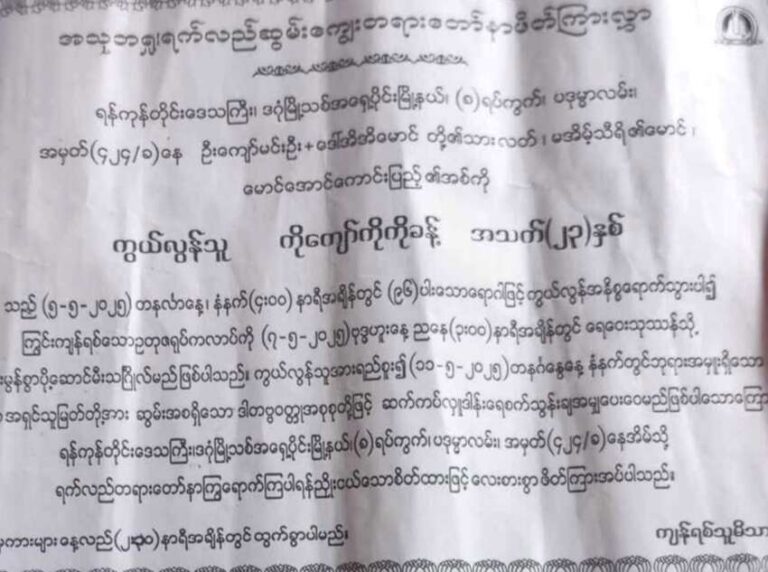 အသုဘရှုရက်လည်ဆွမ်းကျွေးတရားတော်နာဖိတ်ကြားလွှာ
ရန်ကုန်တိုင်းဒေသကြီး၊ ဒဂုံမြို့သစ်အရှေ့ပိုင်းမြို့နယ်၊ (၈)ရပ်ကွက်၊ ပဒုမ္မာလမ်း၊
အမှတ်(၄၂၄/ခ)နေ ဦးကျော်မင်းဦး+ဒေါ်အိအိမောင် တို့၏သားလတ်၊ မအိမ့်သီရိ၏မောင်၊
မောင်အောင်ကောင်းပြည့်၏အစ်ကို
ကွယ်လွန်သူ ကိုကျော်ကိုကိုခန့် အသက်(၂၃)နှစ်
သည် (၅-၅-၂၀၂၅) တနင်္လာနေ့၊ နံနက်(၄း၀၀) နာရီအချိန်တွင် (၉၆)ပါးသောရောဂါဖြင့် ကွယ်လွန်အနိစ္စရောက်သွားပါ၍
ကြွင်းကျန်ရစ်သောဥတုဇရုပ်ကလာပ်ကို (၇-၅-၂၀၂၅)ဗုဒ္ဓဟူးနေ့ ညနေ(၃း၀၀)နာရီအချိန်တွင် ရေဝေးသုသာန်သို့
မွန်စွာပို့ဆောင်မီးသင်္ဂြိုလ်မည်ဖြစ်ပါသည်။ ကွယ်လွန်သူအားရည်စူး၍ (၁၁-၅-၂၀၂၅)တနင်္ဂနွေနေ့ နံနက်တွင်ဘုရားအမှူးရှိသော
အရှင်သူမြတ်တို့အား ဆွမ်းအစရှိသော ဒါတဗ္ဗဝတ္ထုအစုစုတို့ဖြင့် ဆက်ကပ်လှူဒါန်းရေစက်သွန်းချအမျှပေးဝေမည်ဖြစ်ပါသောကြော
ရန်ကုန်တိုင်းဒေသကြီး၊ဒဂုံမြို့သစ်အရှေ့ပိုင်းမြို့နယ်၊(၈)ရပ်ကွက်၊ပဒုမ္မာလမ်း၊ အမှတ်(၄၂၄/ခ)နေအိမ်သို့
ရက်လည်တရားတော်နာကြွရောက်ကြပါရန်ညှိုးငယ်သောစိတ်ထားဖြင့် လေးစားစွာ ဖိတ်ကြားအပ်ပါသည်။
ကားများ နေ့လည်(၂း၀၀)နာရီအချိန်တွင်ထွက်ခွာပါမည်။ ကျန်ရစ်သူမိသာ